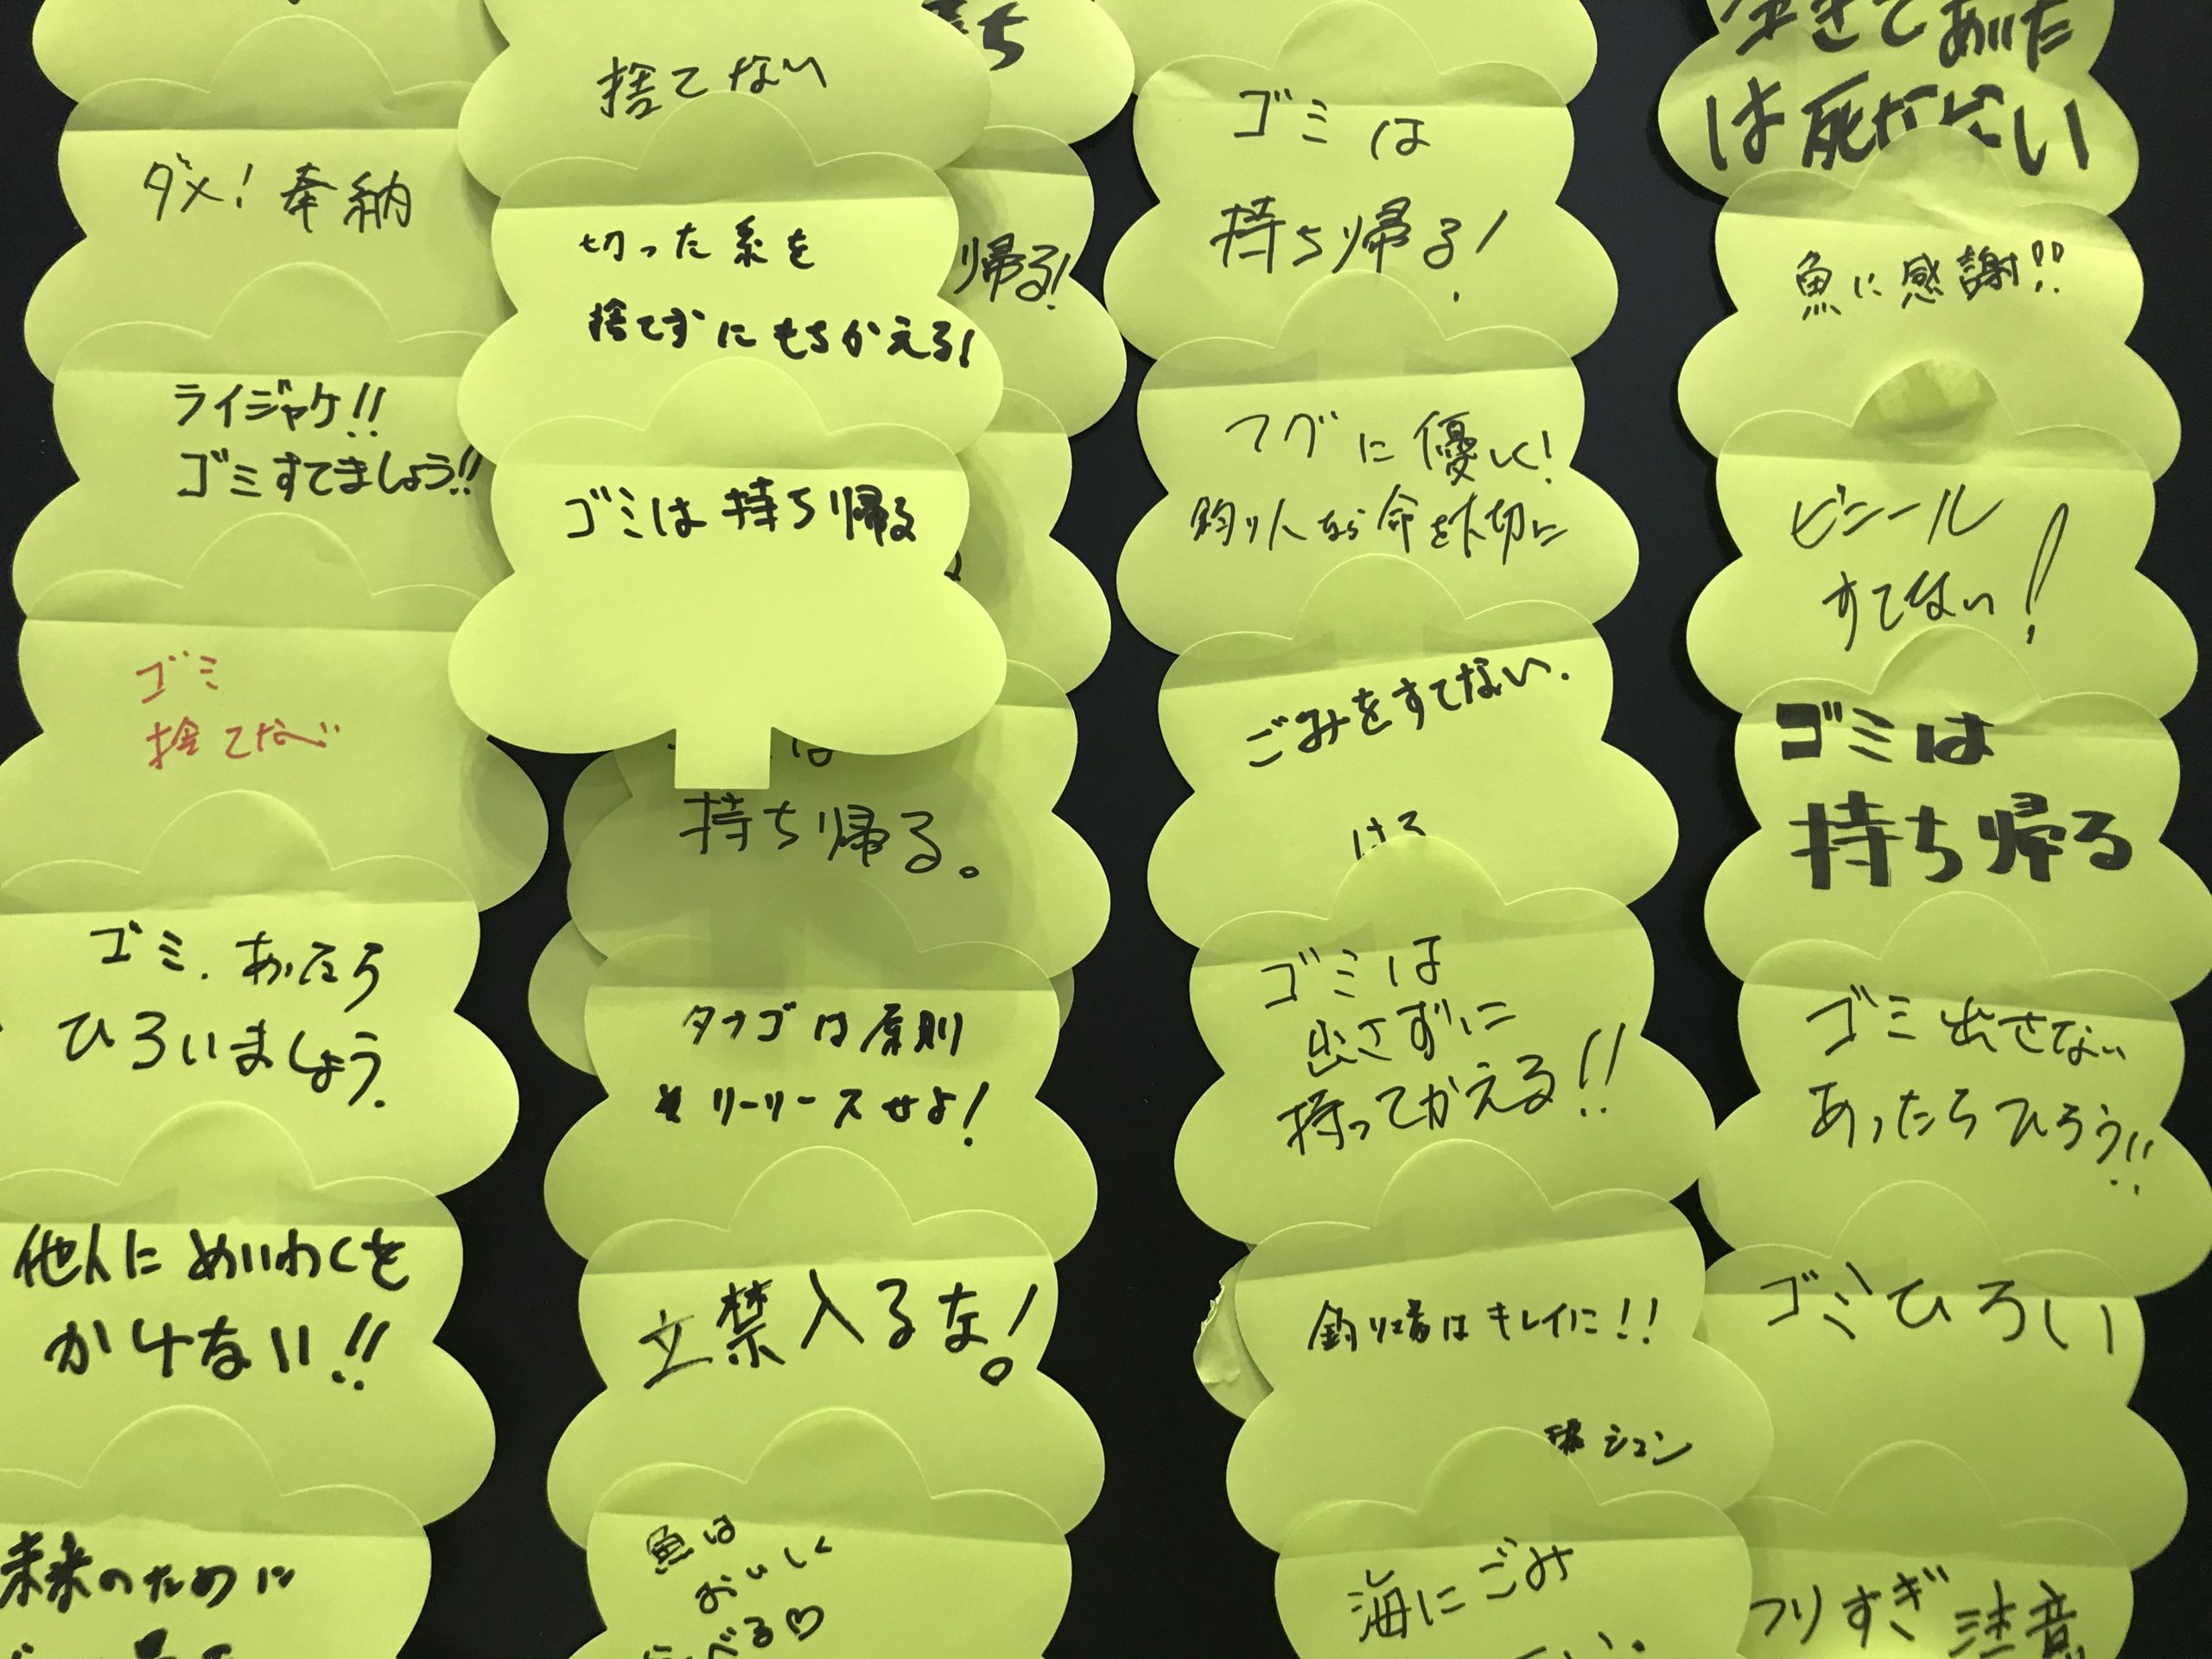 ダメ!奉納
ライジャケ!!
ゴミすてましょう!!
ゴミ
ゴミ.あったら
ひろいましょう.
他人にめいわくを
かけない!!
未来のために
捨てない
切った糸を
捨てずにもちかえる!
ゴミは持ち帰る
帰る!
持ち帰る。
は原則
リーリースせよ!
立禁入るな!
魚は
おいしく
べる♡
ゴミは
持ち帰る!
フグに優しく!
釣り人なら命を大切に
ごみをすてない.
ゴミは
出さずに
持ってかえる!!
釣り場はキレイに!!
シュン
海にごみ
は死なない
魚に感謝!!
ビニール
すてない!
ゴミは
持ち帰る
ゴミ出さない
あったらひろう!!
ゴミひろい
フリすぎ注意